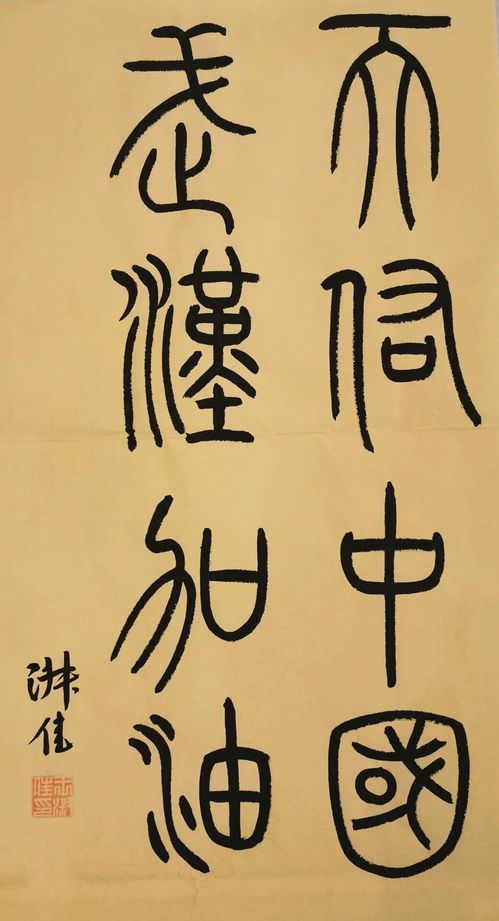 天佑中國
武漢加油
淋佳